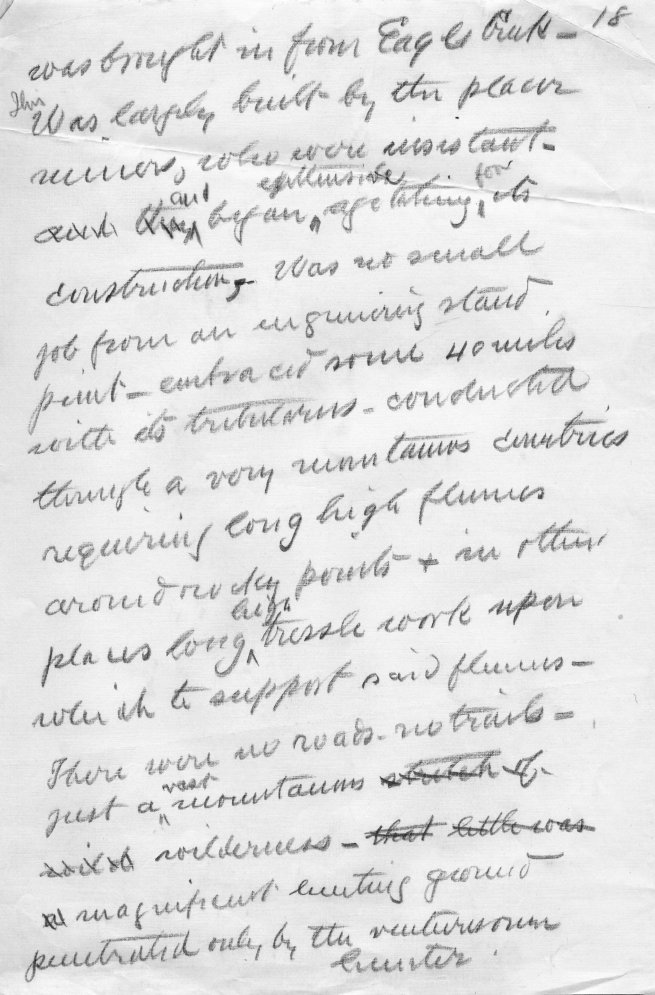 18
was brought in from Eagle Creek -
This
Was largely built by the placer
miners, who were insistant -
and enthusiastic for
and they began agitating its
construction, - Was no small
job from an engineering stand
point - embraced some 40 miles
with its tributaries - conducted
through a very mountainous countries
requiring long high flumes
around rocky points + in other
high
places long tressle work upon
which to support said flumes -
There were no roads - no trails -
vast
just a mountainous stretch of
wilderness - that little was
magnificent hunting ground
penetrated only by the venturesome
hunter.